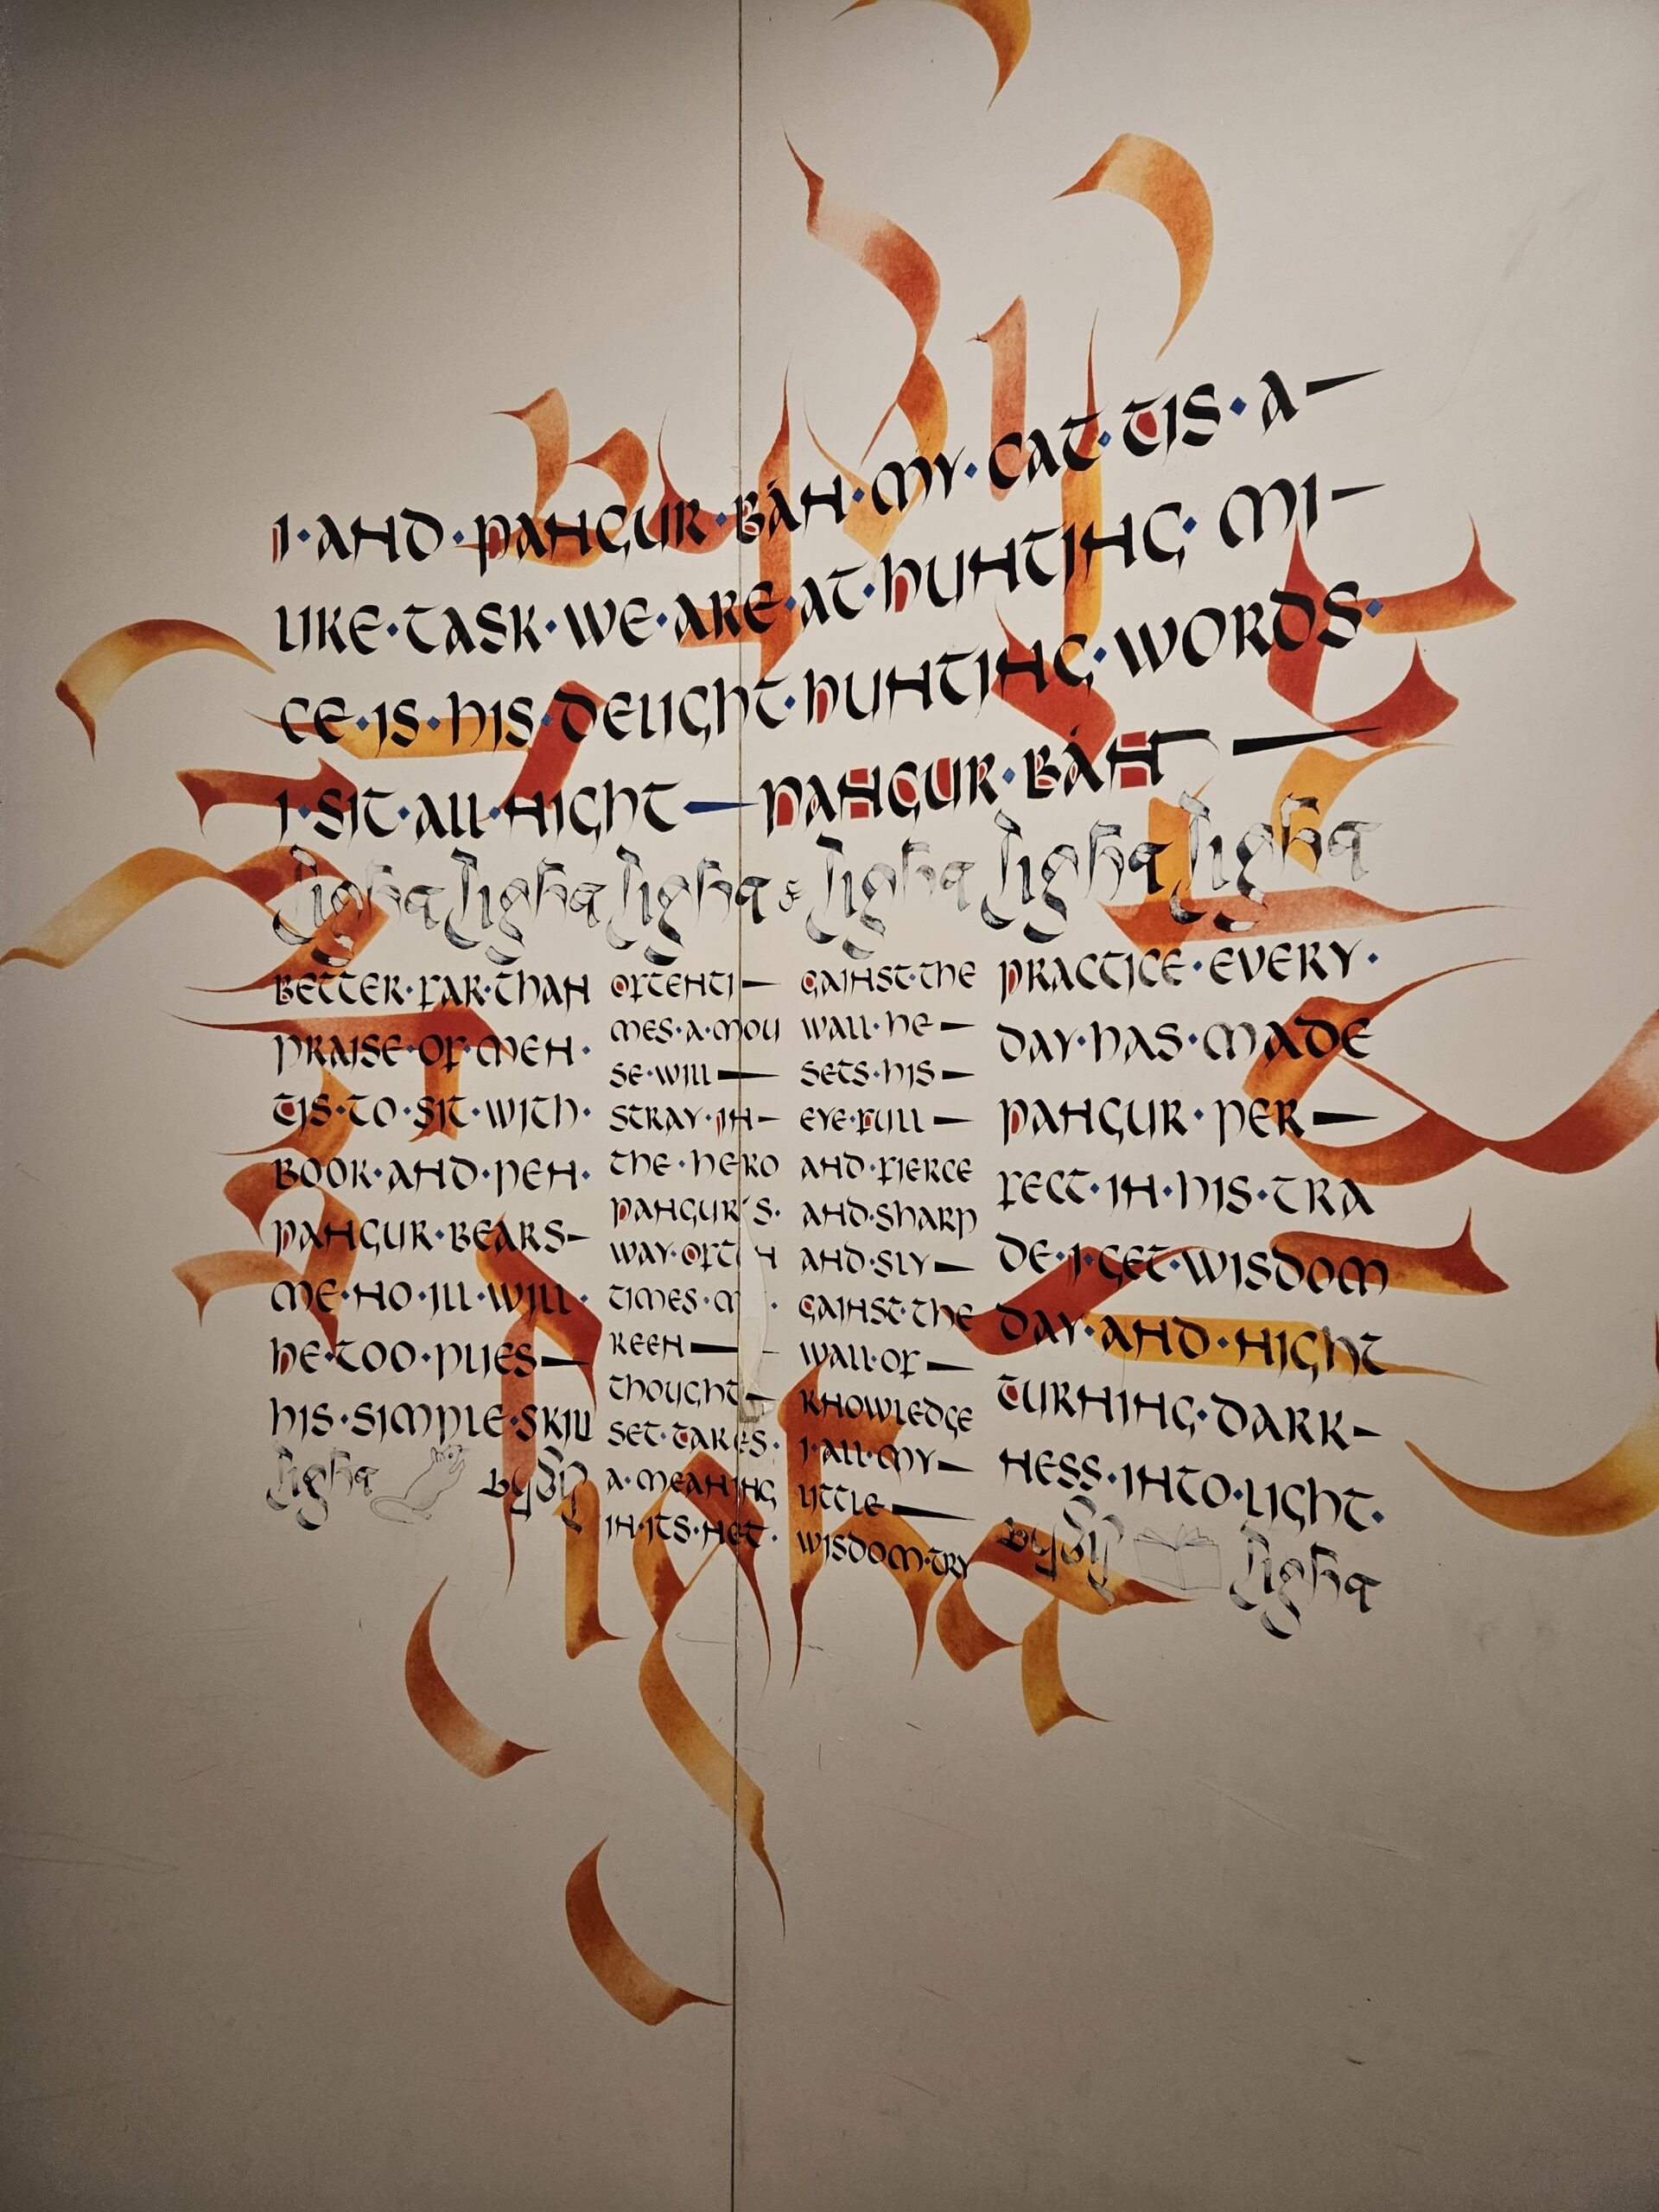 I·AND·PANGUR·BÁN·MY·CAT·TIS·A—
LIKE·TASK·WE·ARE·AT·HUNTING·MI—
CE·IS·HIS·DELIGHT·HUNTING·WORDS·
I·SIT·ALL·NIGHT—PANGUR·BÁN—
BETTER·FAR·THAN
PRAISE·OF·MEN·
TIS·TO·SIT·WITH·
BOOK·AND·PEN·
PANGUR·BEARS—
ME·NO·ILL·WILL·
HE·TOO·PLIES—
HIS·SIMPLE·SKILL
OFTENTI—
MES·A·MOU
SE·WILL—
STRAY·IN—
THE·HERO
PANGUR'S·
WAY·OFT
TIMES·M
KEEN—
THOUGHT—
SET·TAKES·
A·MEANING
IN·ITS·NET·
GAINST·THE
WALL·HE—
SETS·HIS—
EYE·FULL—
AND·FIERCE
AND·SHARP
AND·SLY—
GAINST·THE
WALL·OF—
KNOWLEDGE
I·ALL·MY—
LITTLE—
WISDOM·TRY
PRACTICE·EVERY·
DAY·HAS·MADE
PANGUR·PER—
FECT·IN·HIS·TRA
DE·I·GET·WISDOM
DAY·AND·NIGHT
TURNING·DARK—
NESS·INTO·LIGHT·